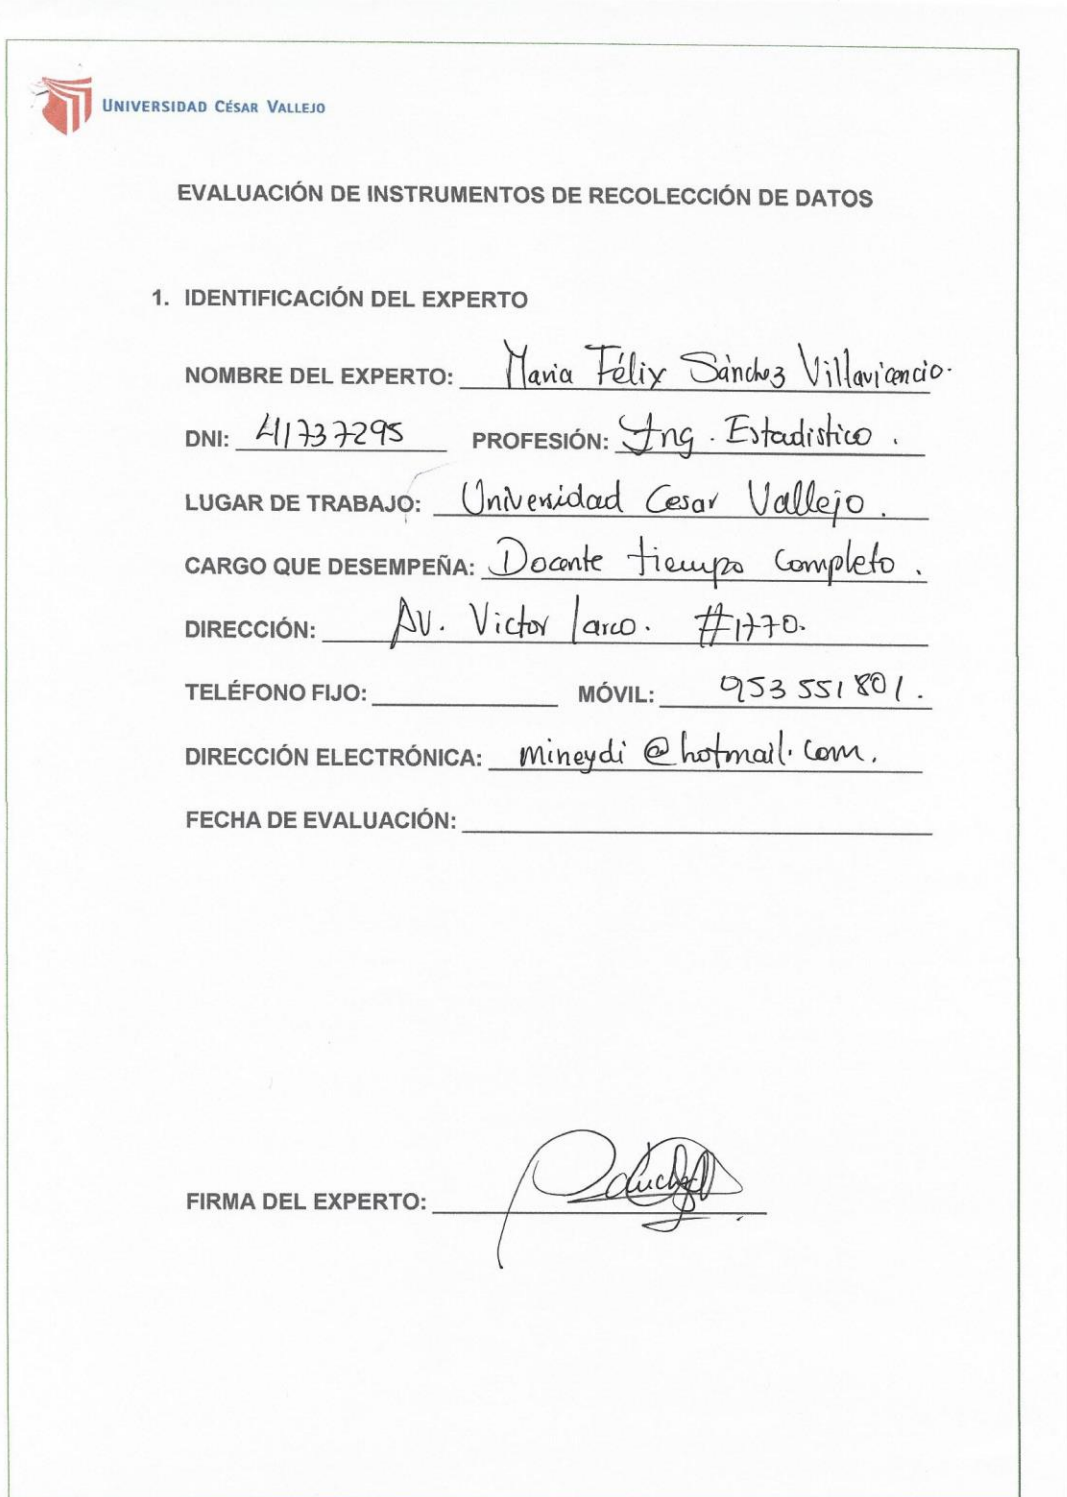 UNIVERSIDAD CÉSAR VALLEJO
EVALUACIÓN DE INSTRUMENTOS DE RECOLECCIÓN DE DATOS
1. IDENTIFICACIÓN DEL EXPERTO
NOMBRE DEL EXPERTO: Maria Félix Sánchez Villavicencio.
DNI: 41737295 PROFESIÓN: Ing. Estadistico.
LUGAR DE TRABAJO: Universidad Cesar Vallejo.
CARGO QUE DESEMPEÑA: Docente tiempo Completo.
DIRECCIÓN: AV. Victor larco. #1770.
TELÉFONO FIJO: MÓVIL: 953 551 801.
DIRECCIÓN ELECTRÓNICA: mineydi@hotmail.com.
FECHA DE EVALUACIÓN:
FIRMA DEL EXPERTO: